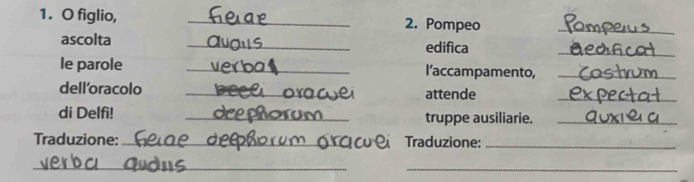 1. O figlio, Feiae
ascolta auduis
le parole verba
dell'oracolo oracuei
di Delfi! deephorum
Traduzione: Feiae deephorum oracuei
verba audus
2. Pompeo Pompeius
edifica aedificat
l'accampamento, castrum
attende expectat
truppe ausiliarie. auxieia
Traduzione: